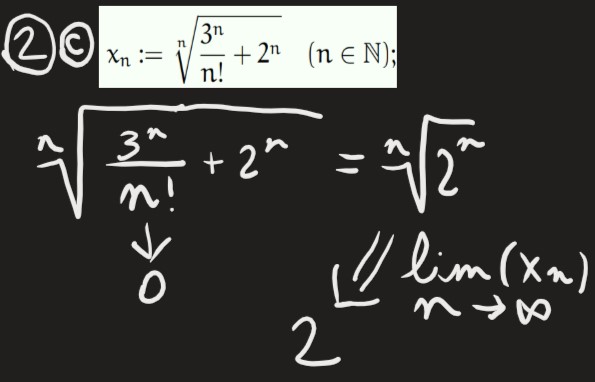 2 c x_n := \sqrt[n]{\frac{3^n}{n!} + 2^n} (n ∈ ℕ);
\sqrt[n]{\frac{3^n}{n!} + 2^n} = \sqrt[n]{2^n}
↓
0
lim (x_n)
n → ∞
2